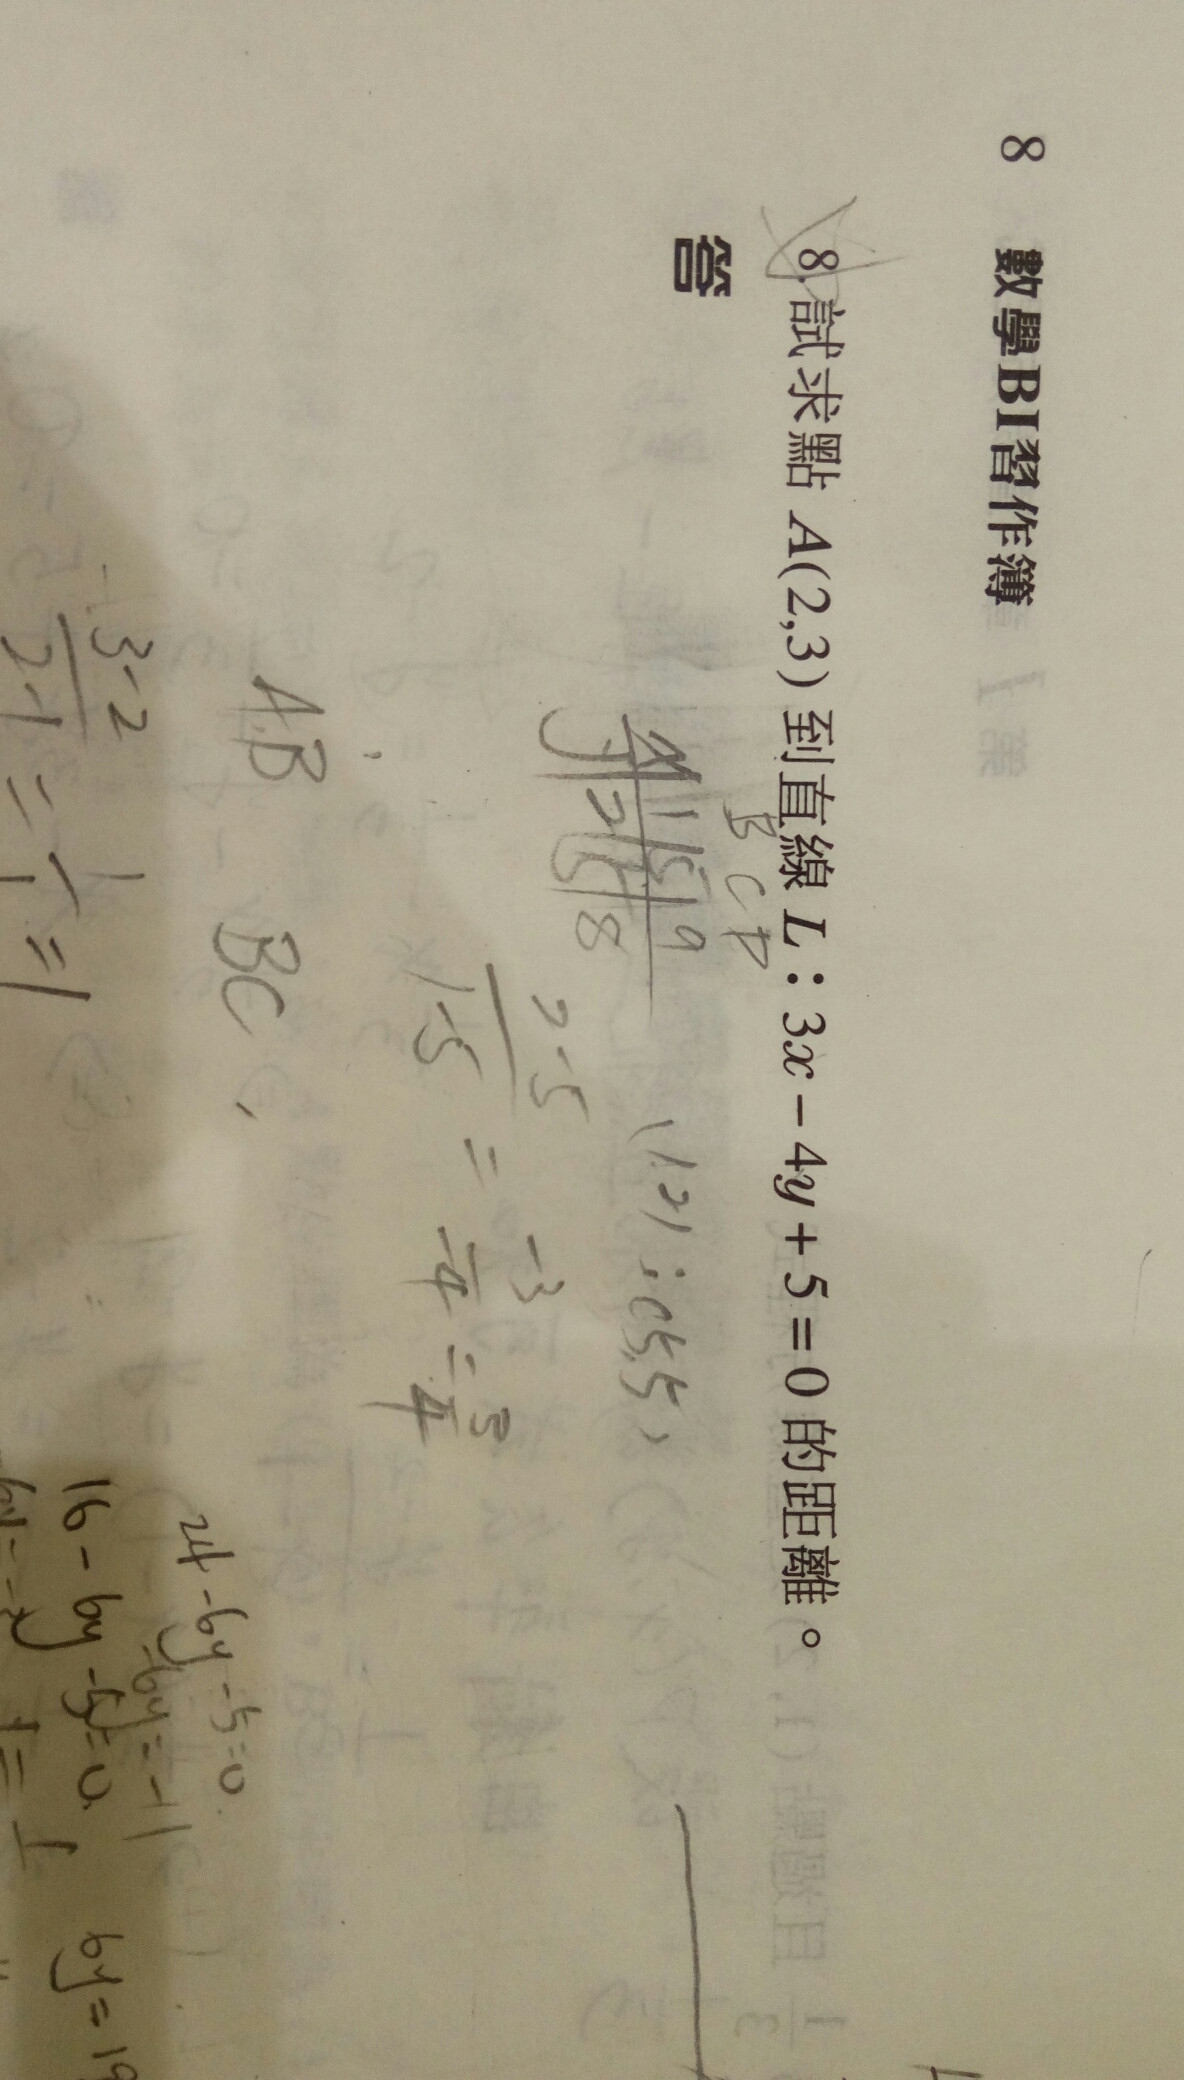 8 數學BI習作簿
8.試求點 A(2,3) 到直線 L：3x－4y＋5＝0 的距離。
答
B C D
x 1 5 9
y 2 5 8
(1.2) ; (5,5)
2-5/1-5 = -3/-4 = 3/4
A.B BC,
3-2/2-1 = 1/1 = 1
24-6y-5=0
-6y=-1
16-6y-5=0